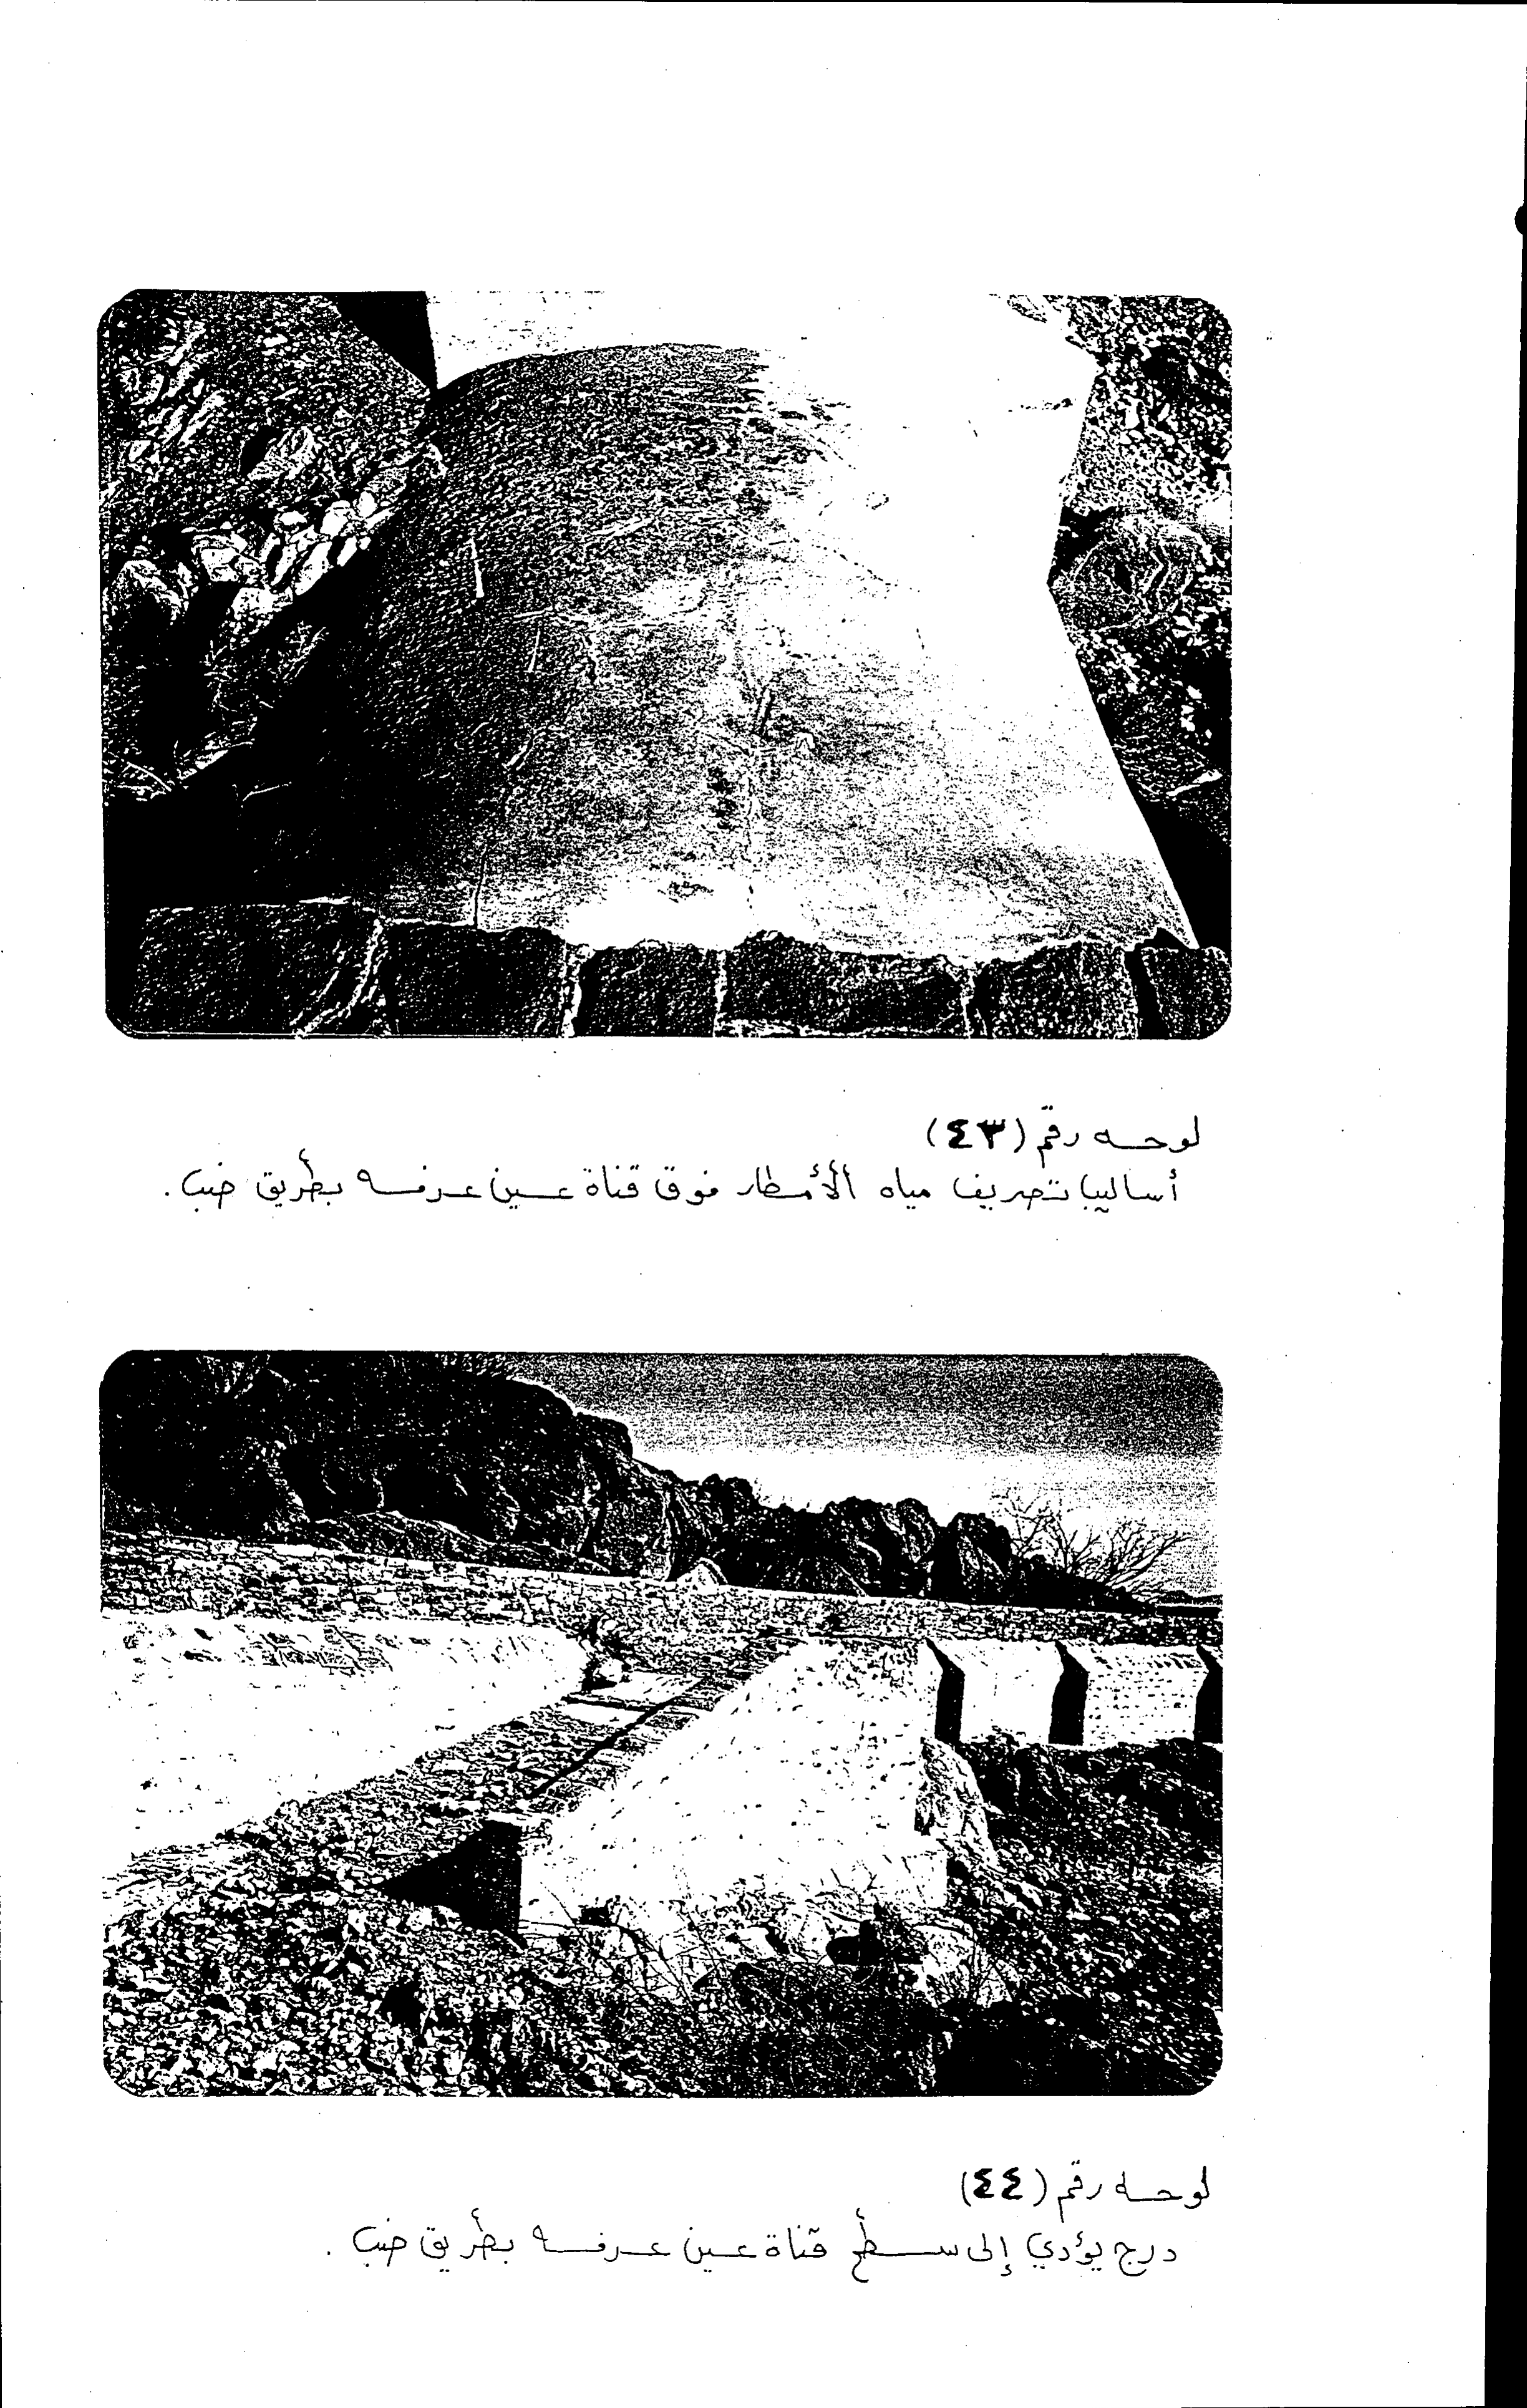 لوحه رقم (٤٣)
أساليب تصريف مياه الأمطار فوق قناة عين عرفه بطريق ضب .
لوحه رقم (٤٤)
درج يؤدي إلى سطح قناة عين عرفه بطريق ضب .